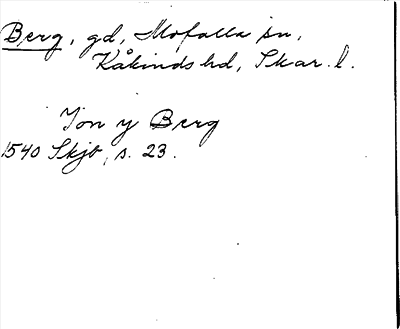 Berg, gd, Mofalla sn,
Kåkinds hd, Skar. l.
Jon y Berg
1540 Skjb, s. 23.